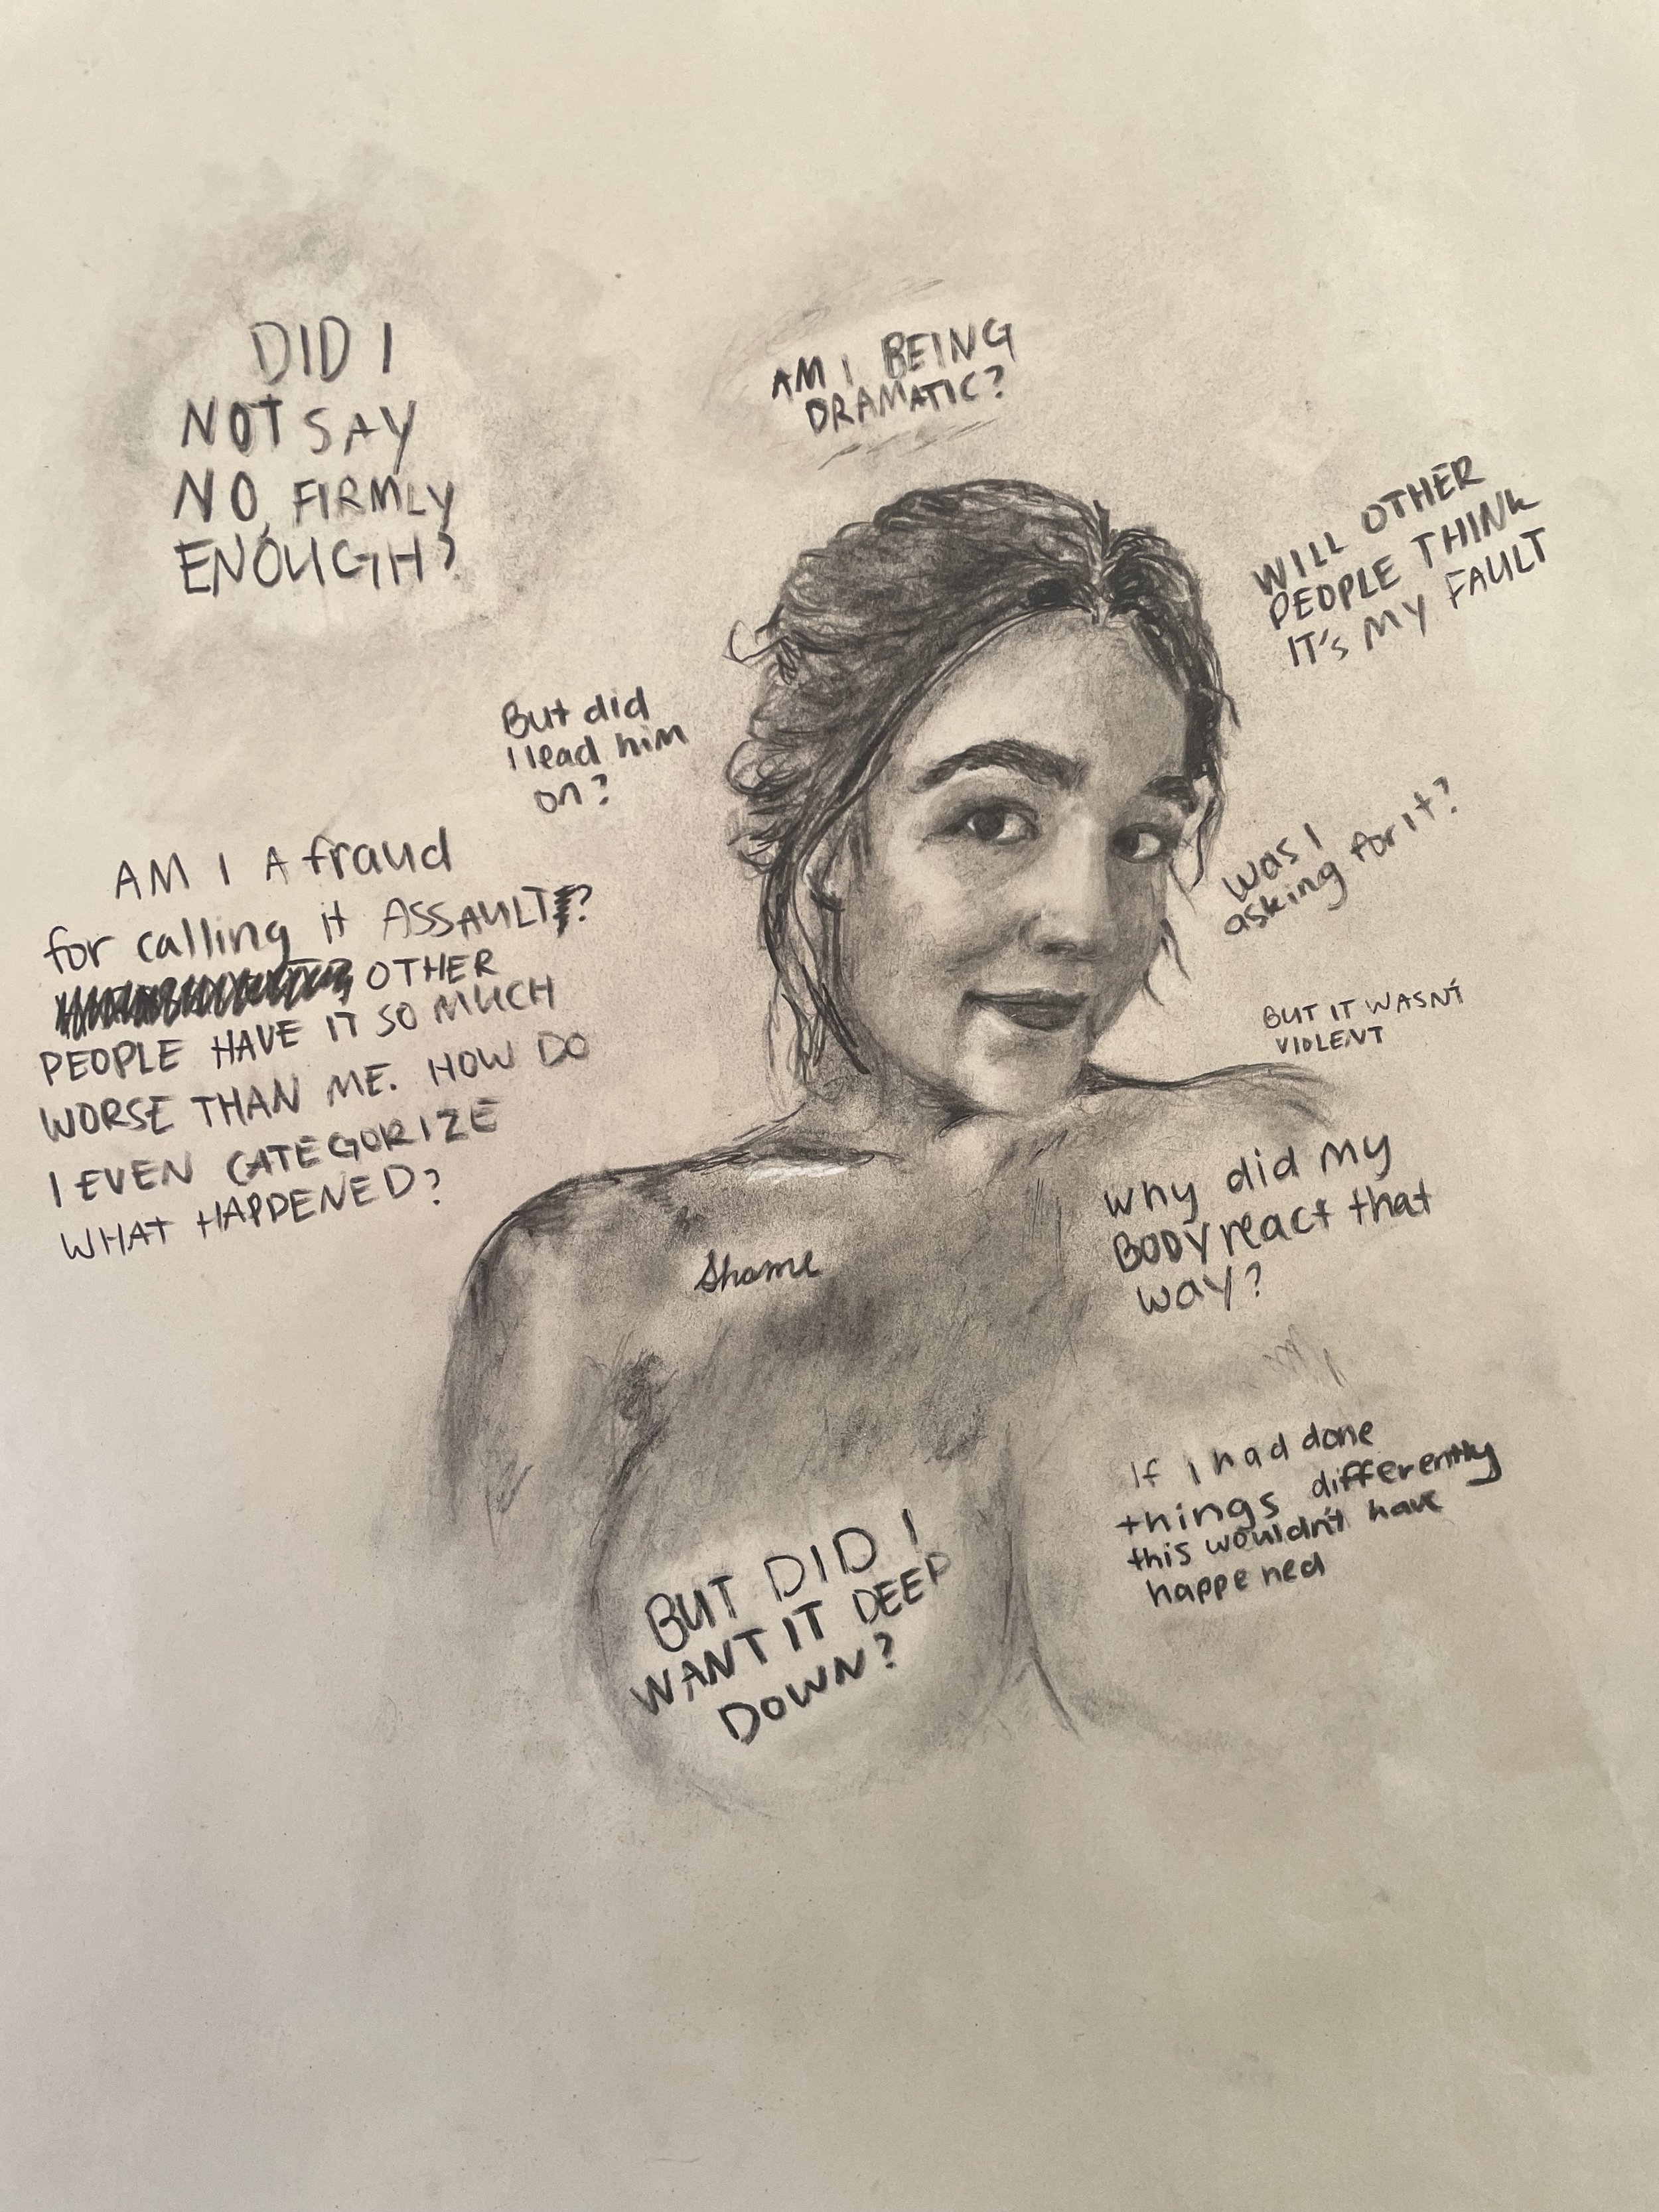 DID I
NOT SAY
NO FIRMLY
ENOUGH?
AM I BEING
DRAMATIC?
WILL OTHER
PEOPLE THINK
IT'S MY FAULT
But did
I lead him
on?
Was I
asking for it?
AM I A fraud
for calling it ASSAULT?
OTHER
PEOPLE HAVE IT SO MUCH
WORSE THAN ME. HOW DO
I EVEN CATEGORIZE
WHAT HAPPENED?
BUT IT WASN'T
VIOLENT
Shame
Why did my
BODY react that
way?
If I had done
things differently
this wouldn't have
happened
BUT DID I
WANT IT DEEP
DOWN?